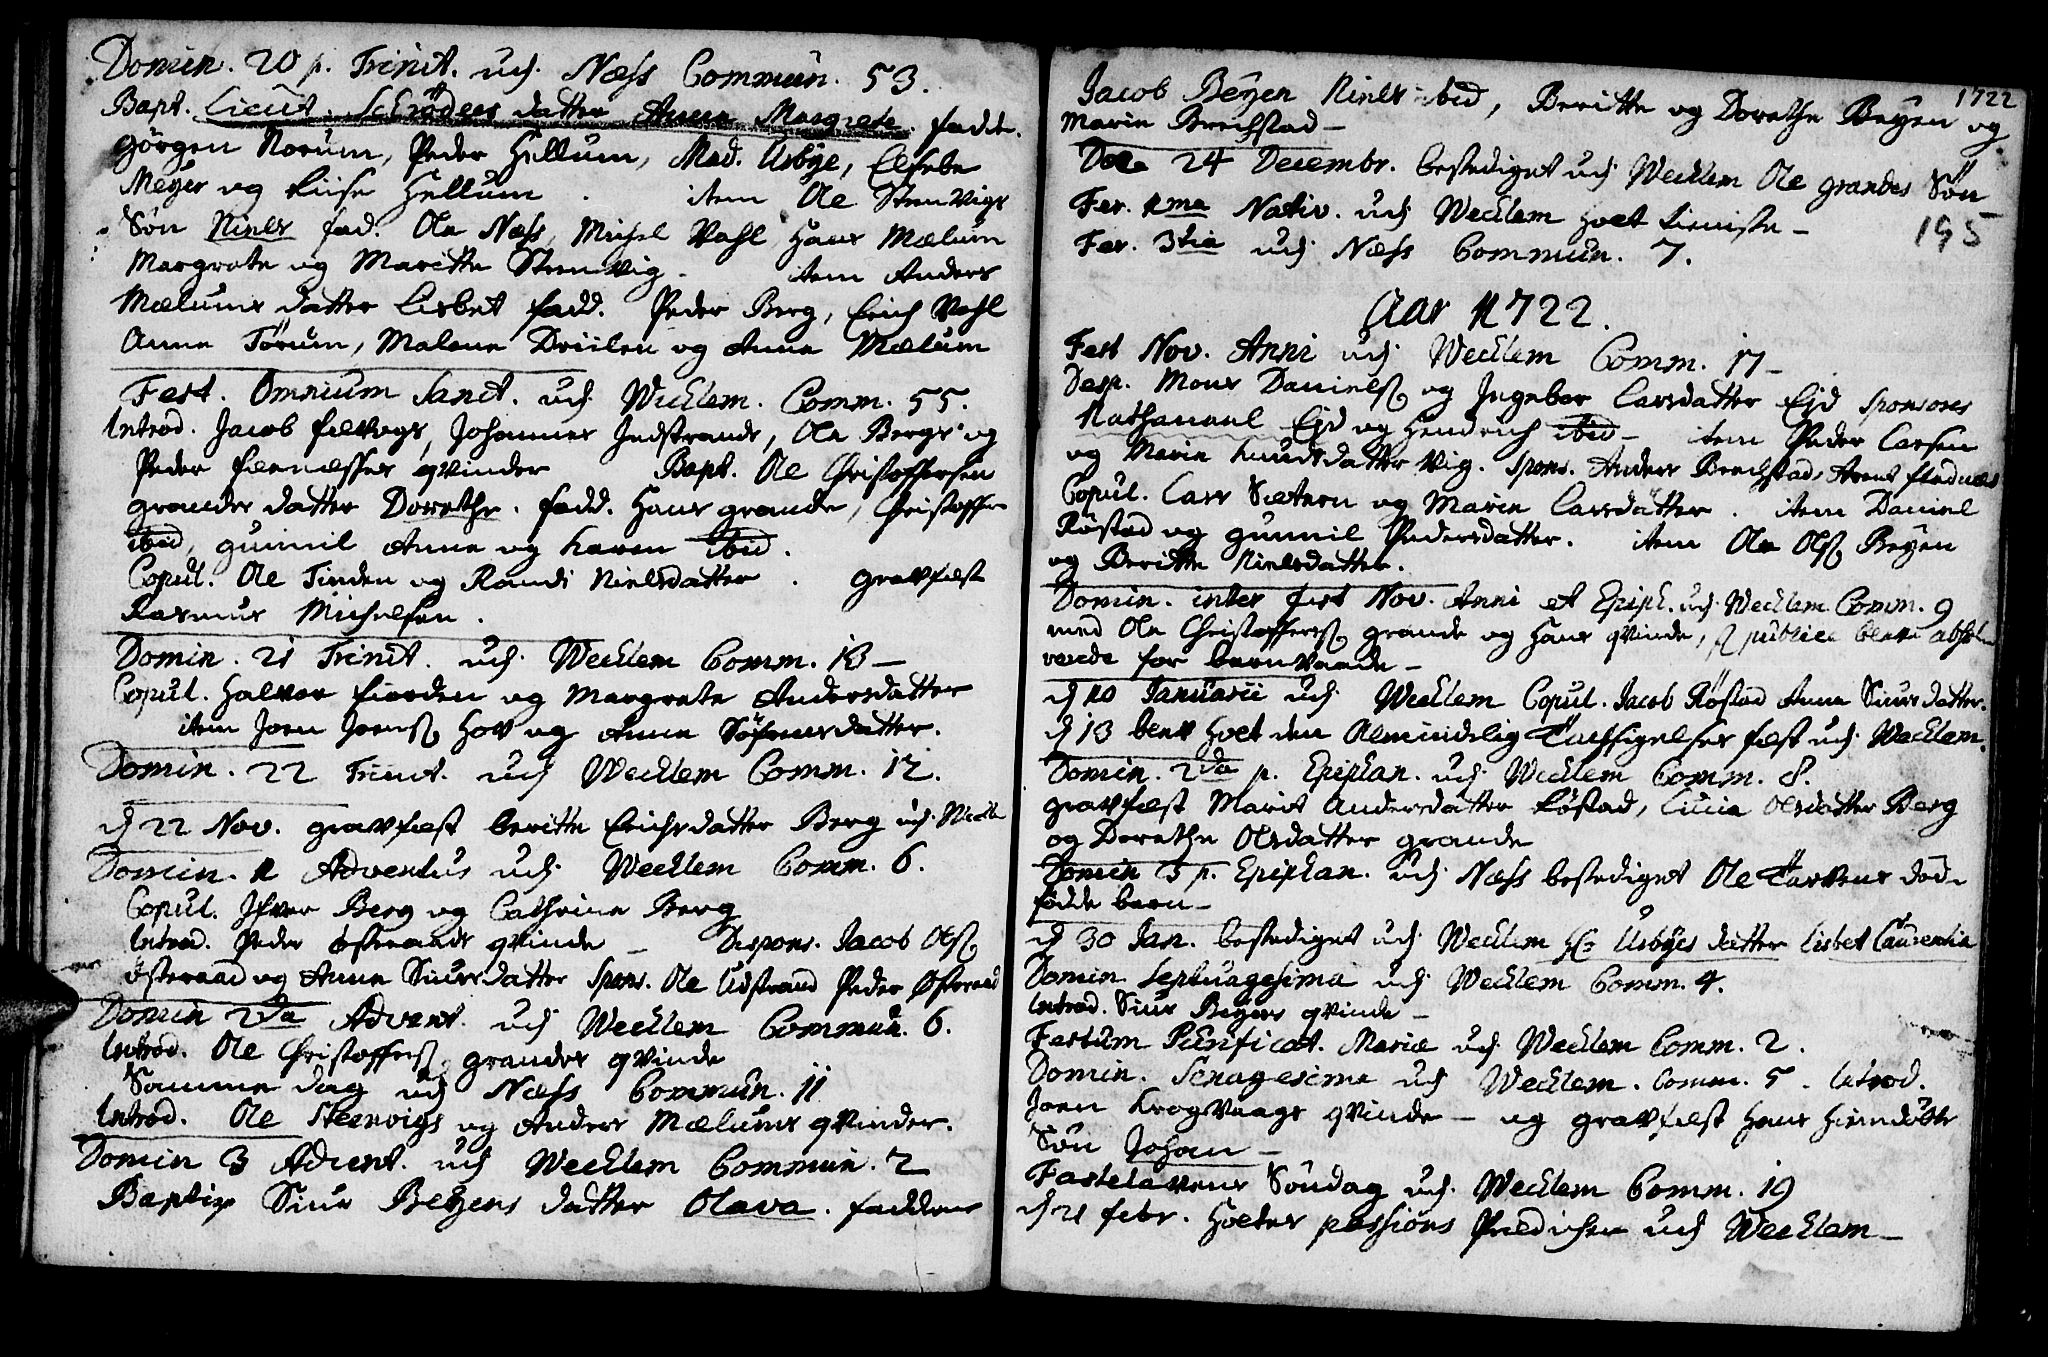 Domin. 20 p. Trinit. udj Næss Commun. 53.
Bapt. Lieut. Schröders datter Anna Margrete. fadde.
Görgen Norum, Peder Hellum, Mad. Usbye, Elsebe
Meyer og Luise Hellum . item Ole Stenvigs
Søn Niels fad. Ole Næss, Michel Vahl, Hans Mælum
Margrete og Maritte Stenvig. item Anders
Mælums datter Lisbet fadd. Peder Berg, Erich Vahl
Anne Törum, Malene Driilen og Anne Mælum
Fest. Omnium Sanct. udj Wecklem. Comm. 55.
Introd. Jacob, Johannes Indstrands, Ole Bergs og
Peder qvinder Bapt. Ole Christoffersen
grandes datter Dorethe. fadd. Hans grande, Christoffer
ibid, gunnil Anne og Karen ibid.
Copul. Ole Tinden og Randi Nielsdatter . gravfæst
Rasmus Michelsen.
Domin. 21 Trinit. udj Wecklem Comm. 13 –
Copul. Halvor fiorden og Margrete Andersdatter
item Joen Joens. Hov og Anne Söfrensdatter.
Domin. 22 Trinit. udj Wecklem Comm. 12.
d 22 Nov. gravfæst Beritte Erichsdatter Berg udj
Domin. 1 Adventus udj Wecklem Comm. 6.
Copul. Ifver Berg og Cathrine Berg
Introd. Peder Østeraads qvinde – Despons. Jacob Ols.
Østeraad og Anne Siursdatter Spons. Ole Udstrand Peder Østeraad
Domin 2da Advent. udj Wecklem Commun. 6.
Introd. Ole Christoffers. grandes qvinde
Samme dag udj Næss Commun. 11
Introd. Ole Steenvigs og Anders Mælums qvinder.
Domin 3 Advent. udj Wecklem Commun. 2
Baptiz Siur Beyens datter Olava. faddere
1722
Jacob Beyen Niels ibid, Beritte og Dorethe Beyen og
Marin Brechstad –
Den 24 Decembr. bestediget udj Wecklem Ole grandes Søn
Fer. 1ma Nativ. udj Wecklem holt tieniste –
195
Fer. 3tia udj Næss Commun. 7.
Aar 1722.
Fest Nov. Anni udj Wecklem Comm. 17 –
Desp. Mons Daniels. og Ingebor Larsdatter Eid sponsores
Nathanael Eid og Hendrich ibid – item Peder Larsen
og Marin Knudsdatter Vig. Spons. Anders Brechstad, Arent
Copul. Lars Sætern og Marin Larsdatter . item Daniel
Röstad og gunnil Pedersdatter. item Ole Ols. Beyen
og Beritte Nielsdatter.
Domin. inter fest Nov. Anni et Epiph. udj Wecklem Comm. 9
med Ole Christoffers. grande og Hans qvinde, publice bleve absol-
verede for
d 10 Januarii udj Wecklem Copul. Jacob Röstad Anne Siursdatter.
d 13 blev holt den Almindelig Tachsigelses fest udj Wecklem.
Domin. 2da p. Epiphan. udj Wecklem Comm. 8.
gravfæst Marit Andersdatter Röstad, Lucia Olsdatter Berg
og Dorethe Olsdatter grande
Domin 3 p. Epiphan. udj Næss bestediget Ole död-
födde barn –
d 30 Jan. bestediget udj Wecklem Hr. Usbyes datter Lisbet Laurentia
Domin. Septuagesima udj Wecklem Comm. 4.
Introd. Siur Beyens qvinde –
Festum Purificat. Mariæ udj Wecklem Comm. 2.
Domin. Sexagesima udj Wecklem. Comm. 5. Introd.
Joen Krogvaags qvinde – og gravfæst Hans
Søn Johan –
Fastelavens Søndag udj Wecklem Comm. 19
d 21 febr. Holtes passions Prædichen udj Wecklem –